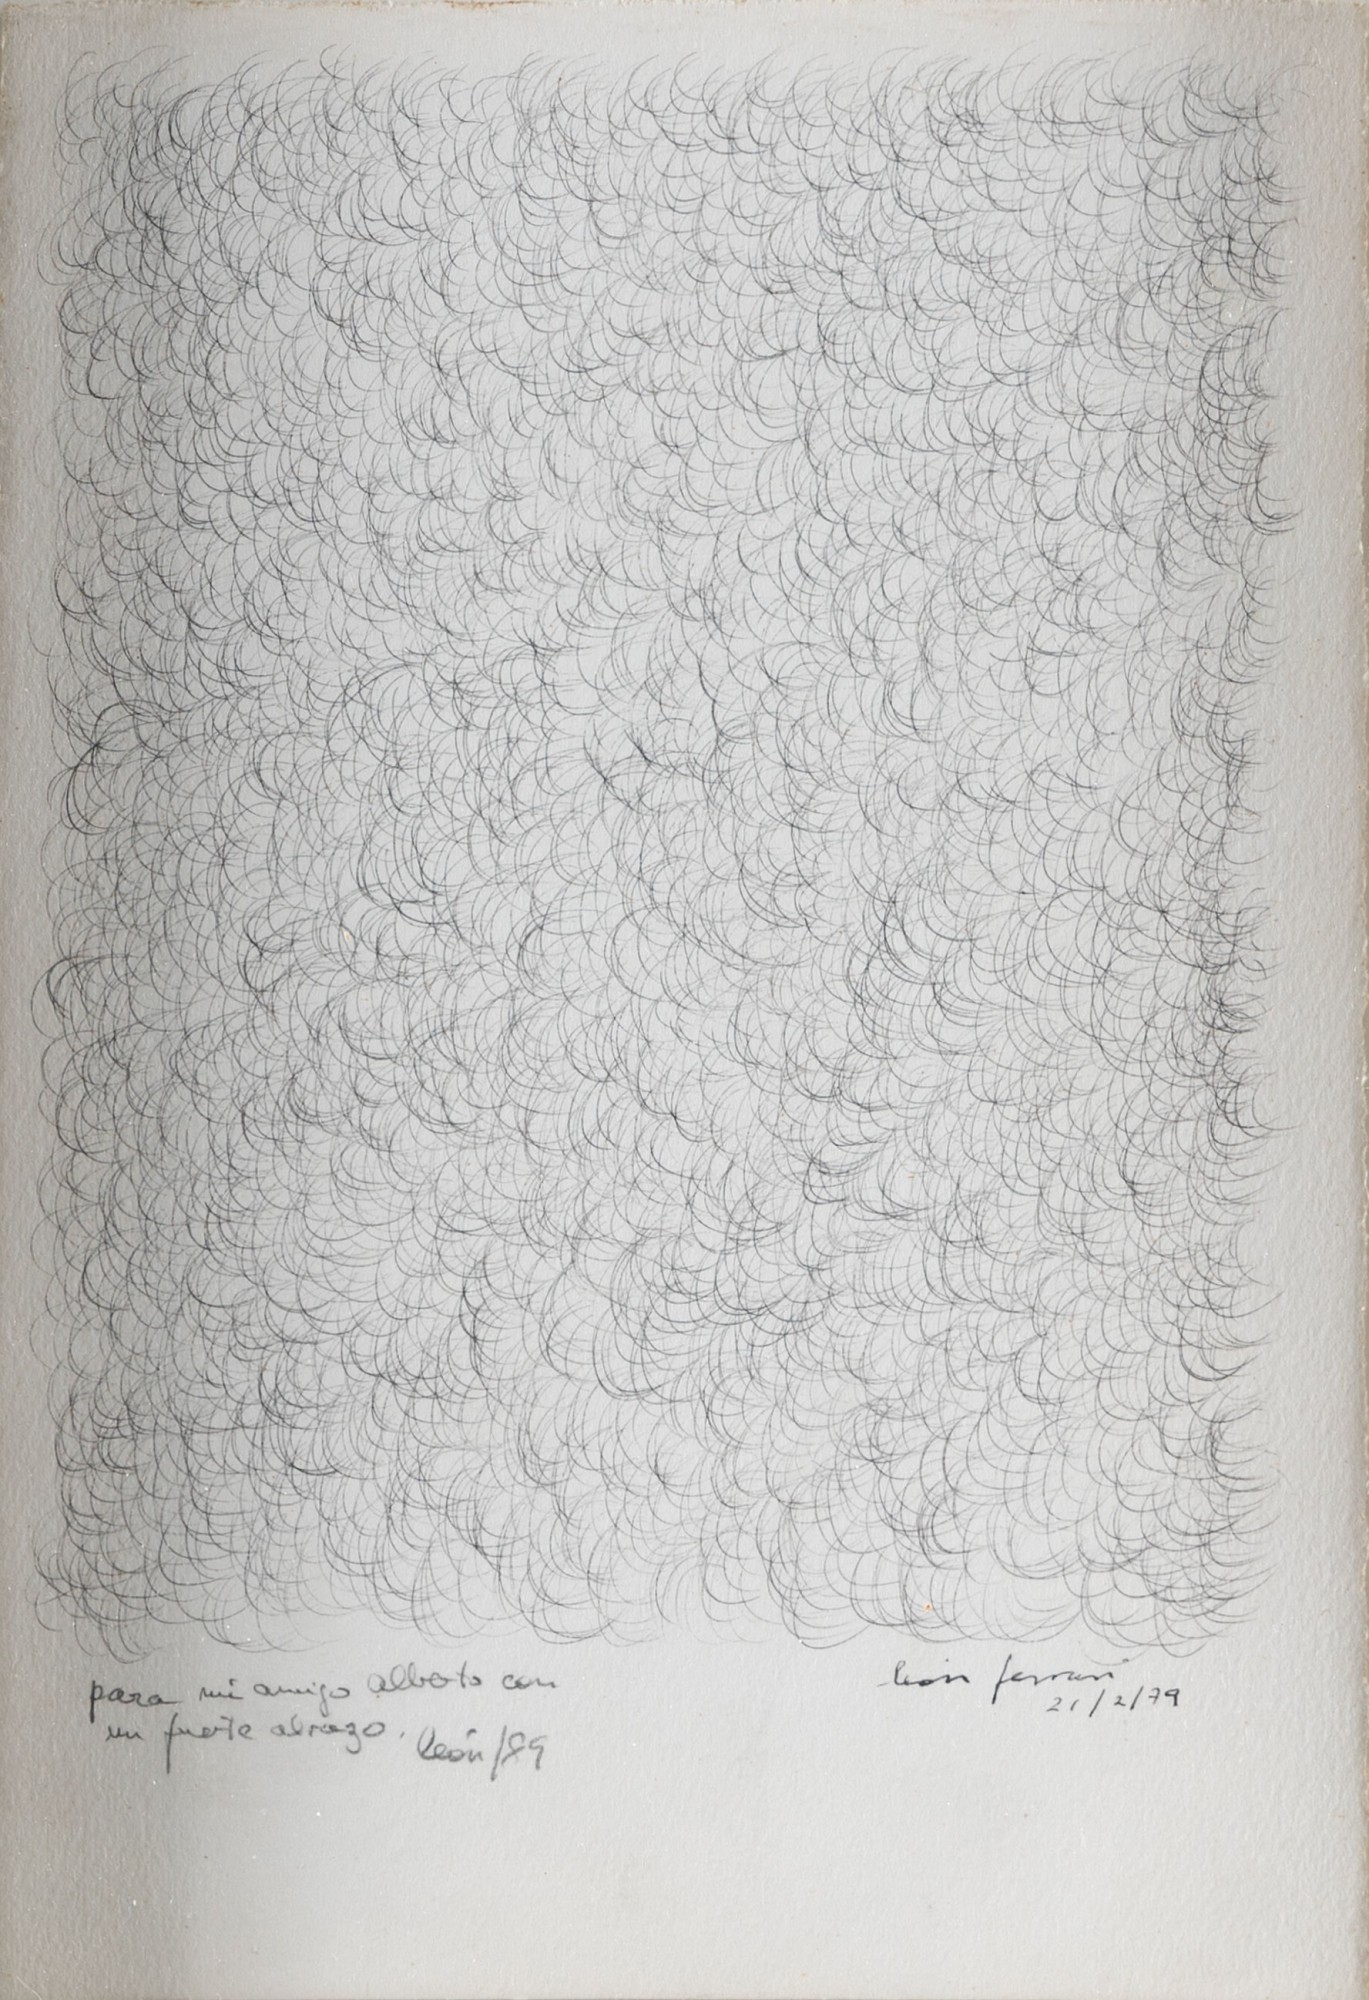 para mi amigo alberto con
un fuerte abrazo.
león/89
león ferrari
21/2/79